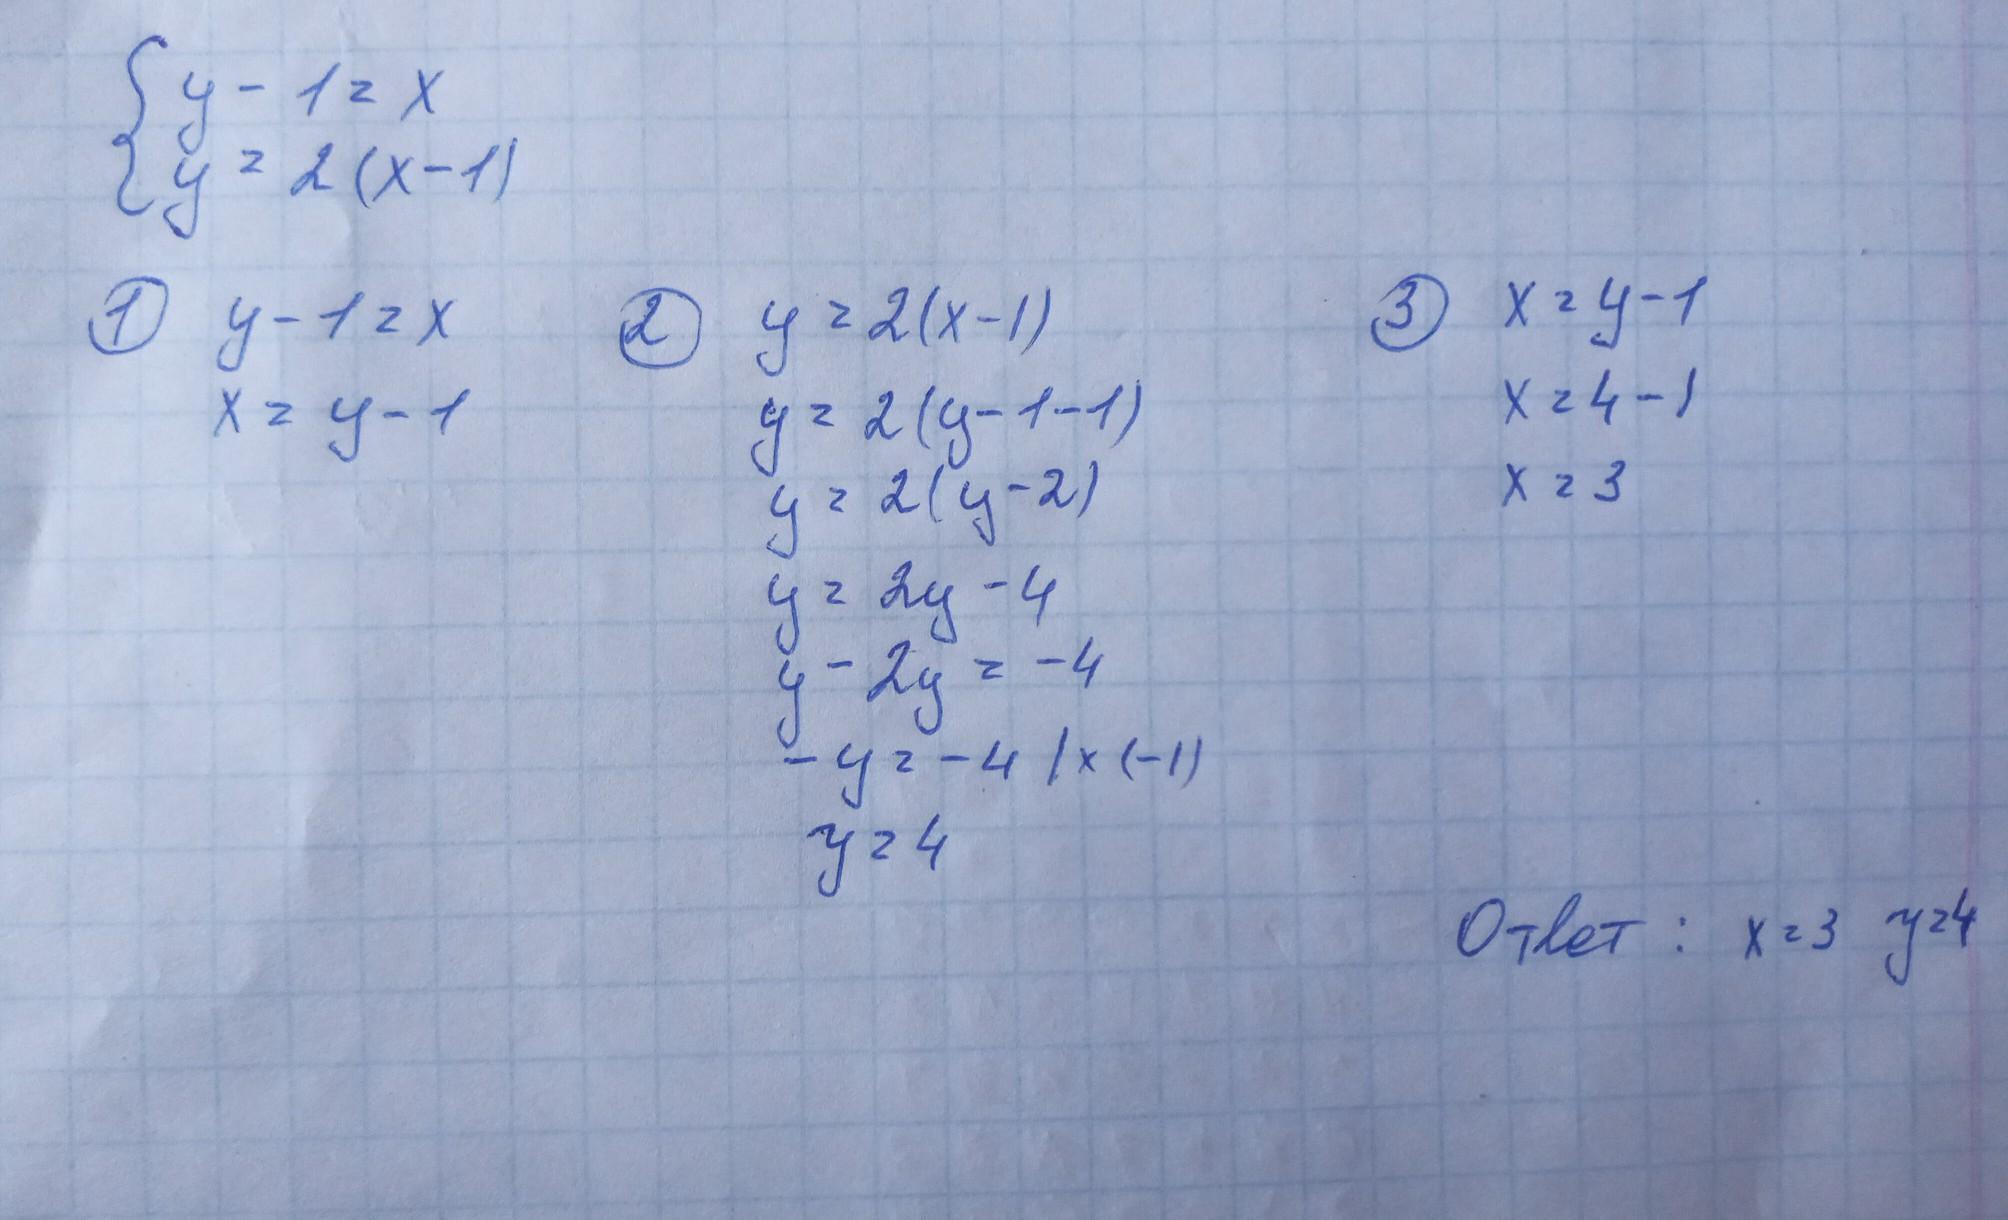 { y - 1 = x
y = 2(x-1)
① y - 1 = x
x = y - 1
② y = 2(x-1)
y = 2(y-1-1)
y = 2(y-2)
y = 2y - 4
y - 2y = -4
- y = -4 | × (-1)
y = 4
③ x = y - 1
x = 4 - 1
x = 3
Ответ : x = 3 y = 4